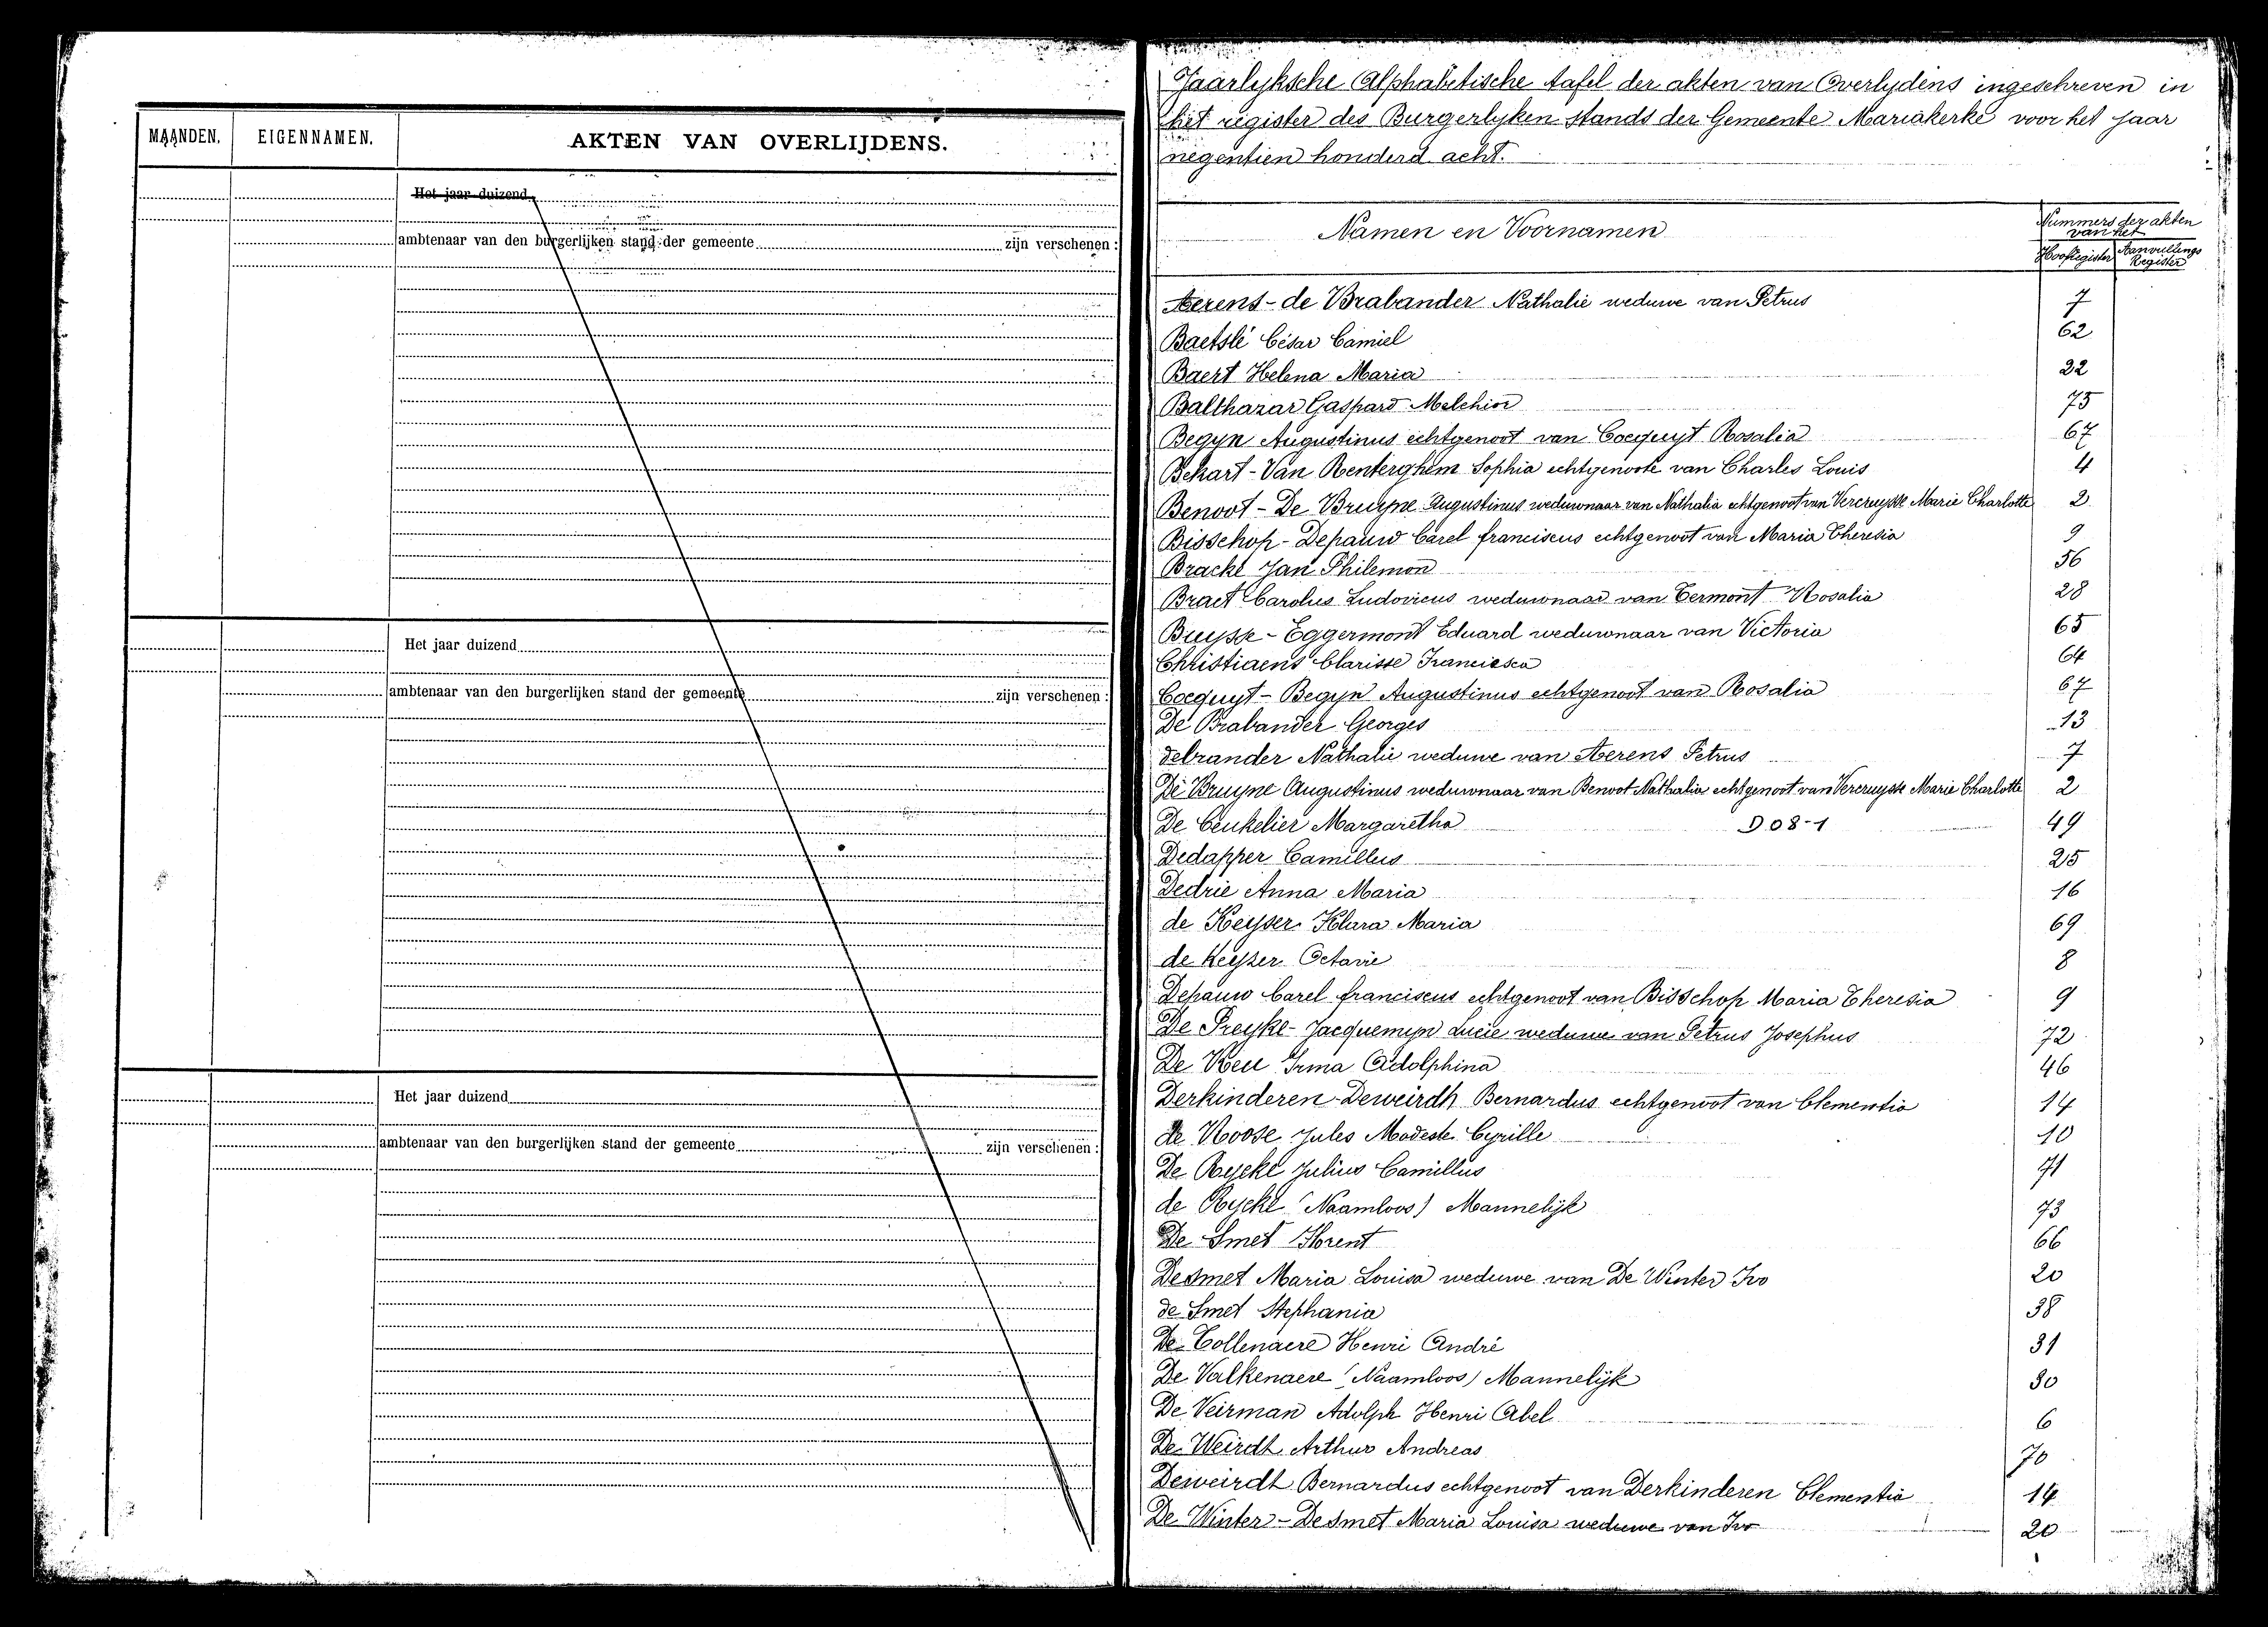 MAANDEN. EIGENNAMEN. AKTEN VAN OVERLIJDENS.
Het jaar duizend
ambtenaar van den burgerlijken stand der gemeente zijn verschenen :
Het jaar duizend
ambtenaar van den burgerlijken stand der gemeente zijn verschenen :
Het jaar duizend
ambtenaar van den burgerlijken stand der gemeente zijn verschenen :
Jaarlyksche Alphabetische tafel der akten van Overlydens ingeschreven in
het register des Burgerlyken Stands der Gemeente Mariakerke voor het jaar
negentien honderd acht.
Namen en Voornamen
Nummers der akten
van het
Hoofdregister Aanvullings
Register
Aerens - de Brabander Nathalie weduwe van Petrus 7
Baetslé César Camiel 62
Baert Helena Maria 22
Balthazar Gaspard Melchior 75
Begyn Augustinus echtgenoot van Cocquyt Rosalia 67
Bekart - Van Renterghem Sophia echtgenoote van Charles Louis 4
Benoot - De Bruyne Augustinus weduwnaar van Nathalia echtgenoot van Vercruysse Marie Charlotte 2
Bisschop - Depauw Carel franciscus echtgenoot van Maria Theresia 9
Bracke Jan Philemon 56
Braet Carolus Ludovicus weduwnaar van Termont Rosalia 28
Buysse - Eggermont Eduard weduwnaar van Victoria 65
Christiaens Clarisse Francisca 64
Cocquyt - Begyn Augustinus echtgenoot van Rosalia 67
De Brabander Georges 13
debrander Nathalie weduwe van Aerens Petrus 7
De Bruyne Augustinus weduwnaar van Benoot Nathalia echtgenoot van Vercruysse Marie Charlotte 2
De Ceukelier Margaretha D08-1 49
Dedapper Camillus 25
Dedrie Anna Maria 16
de Keyser Klara Maria 69
de Keyser Octavie 8
Depauw Carel franciscus echtgenoot van Bisschop Maria Theresia 9
De Preyke - Jacquemyn Lucie weduwe van Petrus Josephus 72
De Reu Irma Adolphina 46
Derkinderen - Deweirdt Bernardus echtgenoot van Clementia 14
de Roose Jules Modeste Cyrille 10
De Rycke Julius Camillus 71
de Rycke (Naamloos) Mannelijk 73
De Smet Florent 66
Desmet Maria Louisa weduwe van De Winter Ivo 20
de Smet Stephania 38
De Tollenaere Henri André 31
De Valkenaere (Naamloos) Mannelijk 30
De Veirman Adolph Henri Abel 6
De Weirdt Arthur Andreas 70
Deweirdt Bernardus echtgenoot van Derkinderen Clementia 14
De Winter - Desmet Maria Louisa weduwe van Ivo 20